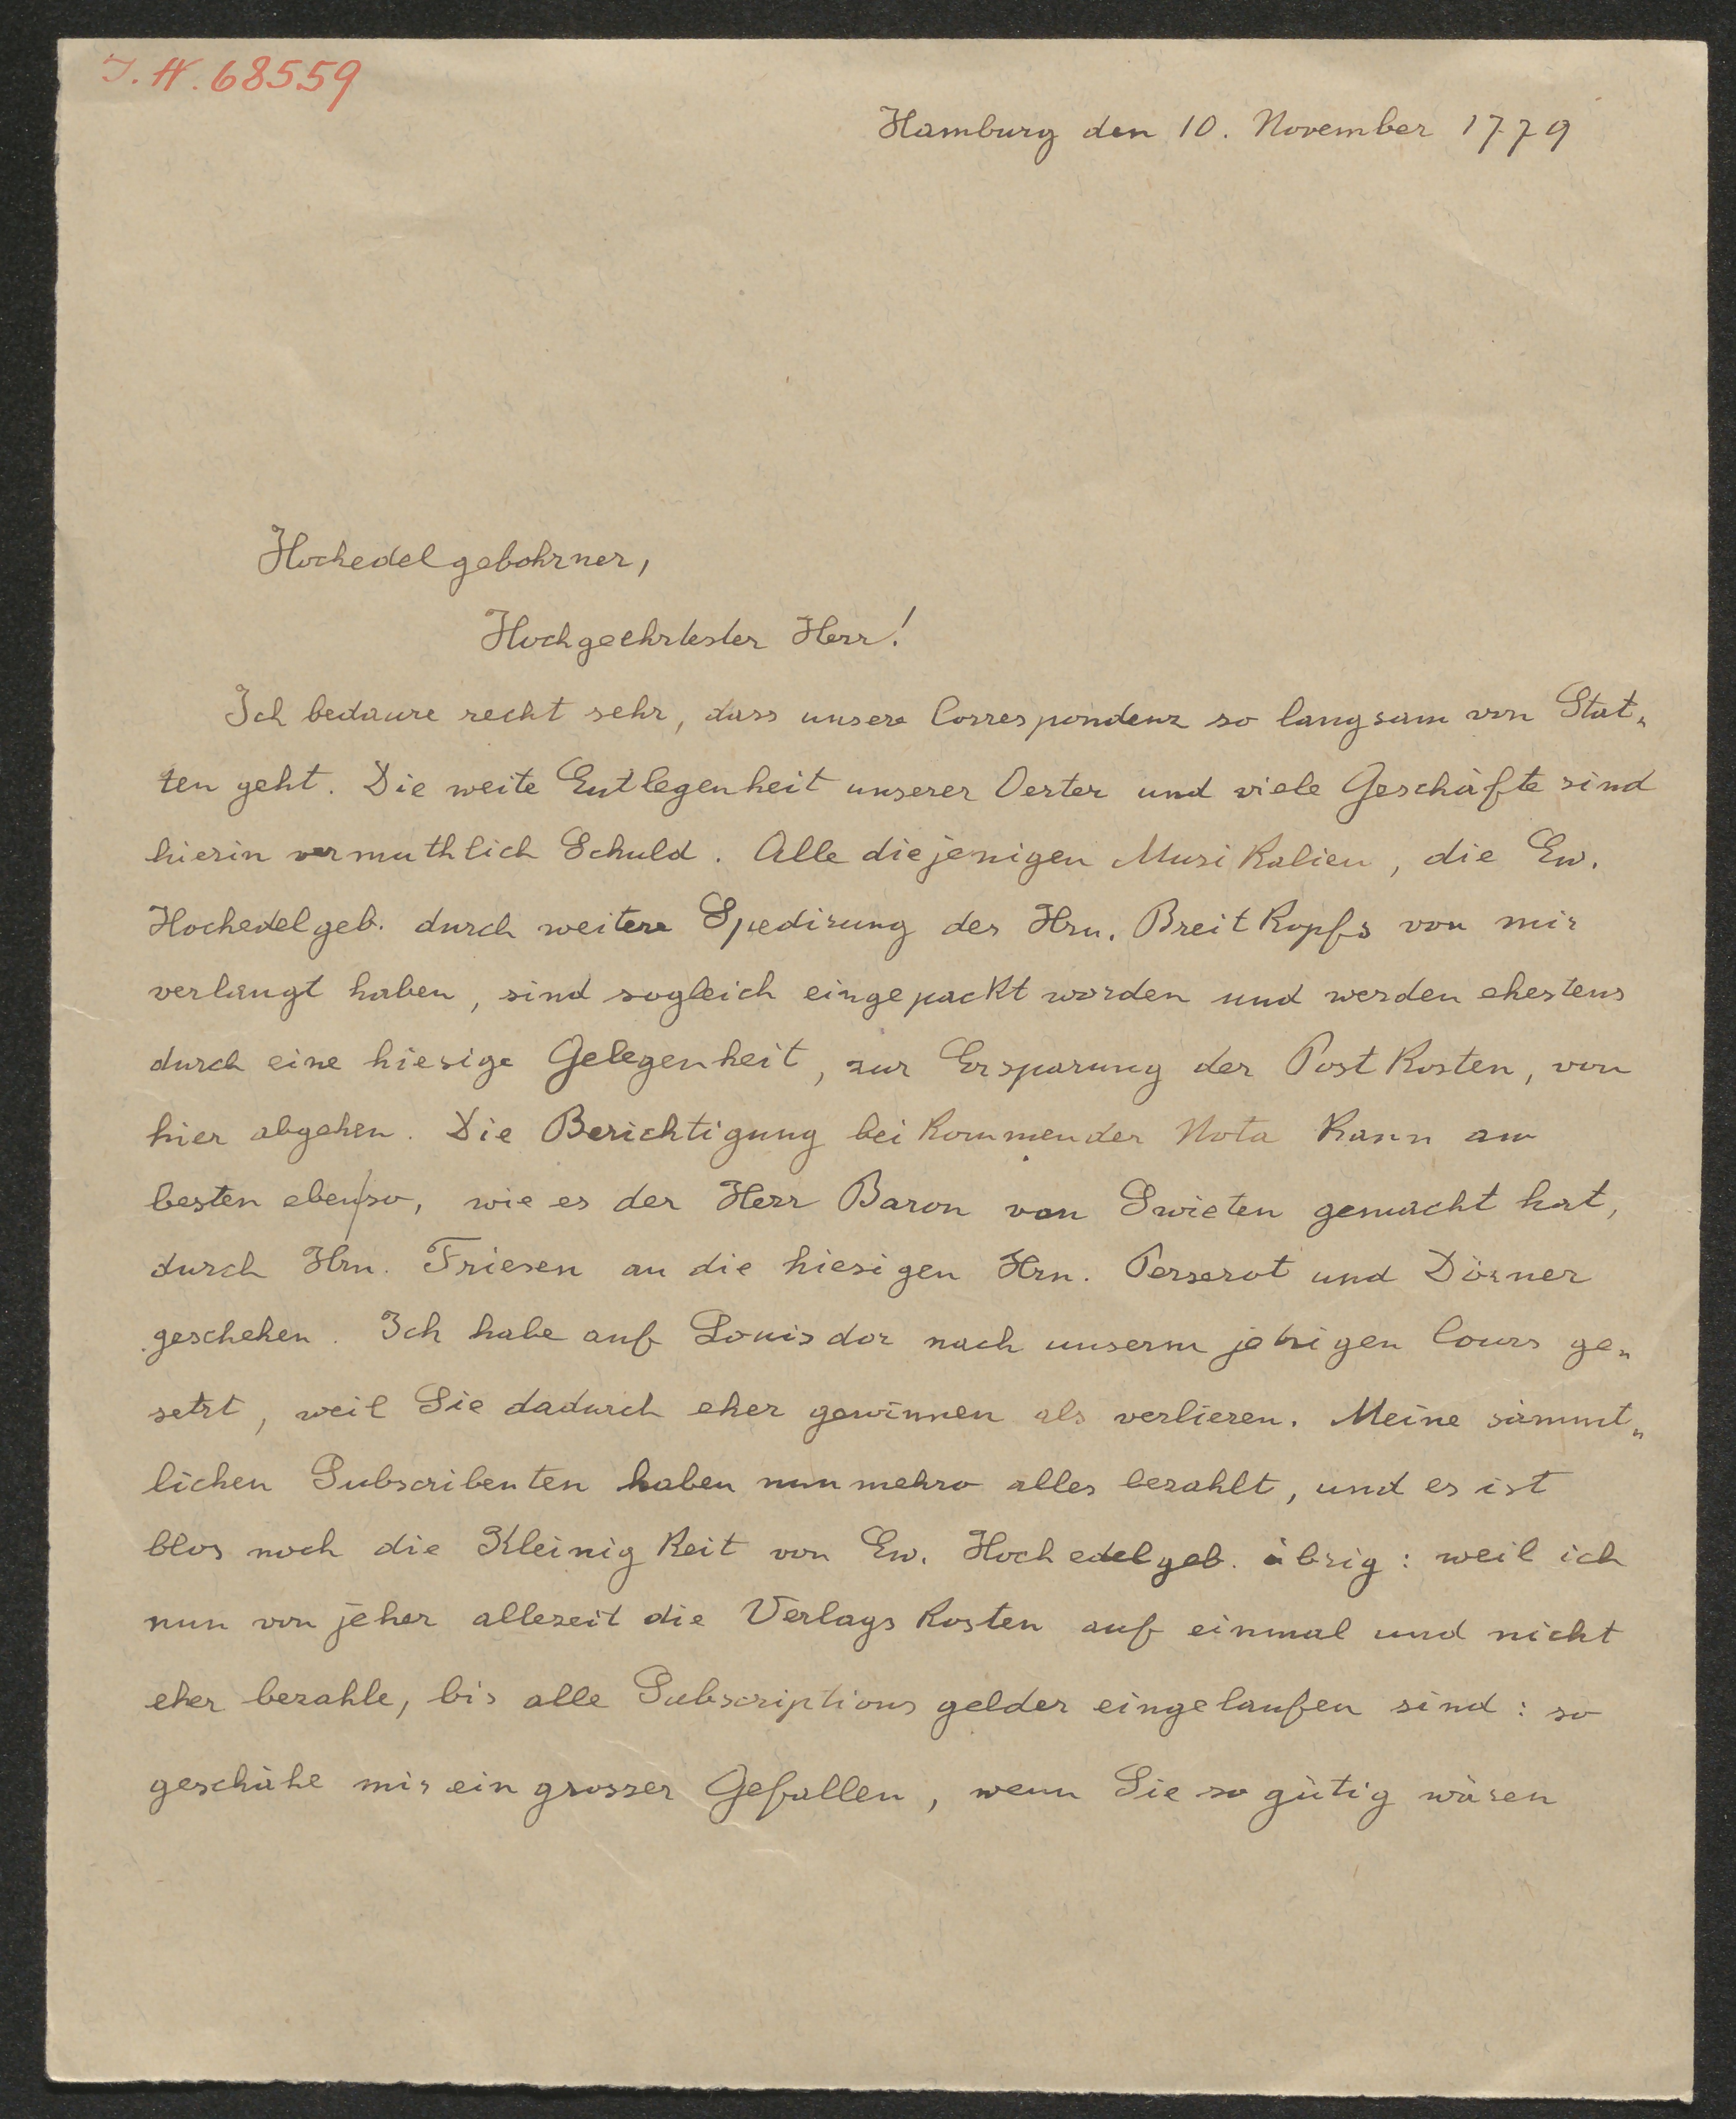 J. N. 68559
Hamburg den 10. November 1779
Hochedelgebohrner,
Hochgeehrtester Herr!
Ich bedaure recht sehr, dass unsere Correspondenz so langsam von Stat„
ten geht. Die weite Entlegenheit unserer Oerter und viele Geschäfte sind
hierin vermuthlich Schuld. Alle diejenigen Musikalien, die Ew.
Hochedelgeb. durch weitere Spedirung des Hrn. Breitkopfs von mir
verlangt haben, sind sogleich eingepackt worden und werden ehestens
durch eine hiesige Gelegenheit, zur Ersparung der Postkosten, von
hier abgehen. Die Berichtigung beikommender Nota kann am
besten ebenso, wie es der Herr Baron von Swieten gemacht hat,
durch Hrn. Friesen an die hiesigen Hrn. Perserot und Dörner
geschehen. Ich habe auf Louisdor nach unserm jetzigen Cours ge„
setzt, weil Sie dadurch eher gewinnen als verlieren. Meine sämmt„
lichen Subscribenten haben nunmehro alles bezahlt, und es ist
blos noch die Kleinigkeit von Ew. Hochedelgeb. übrig: weil ich
nun von jeher allezeit die Verlagskosten auf einmal und nicht
eher bezahle, bis alle Subscriptionsgelder eingelaufen sind: so
geschähe mir ein grosser Gefallen, wenn Sie so gütig wären